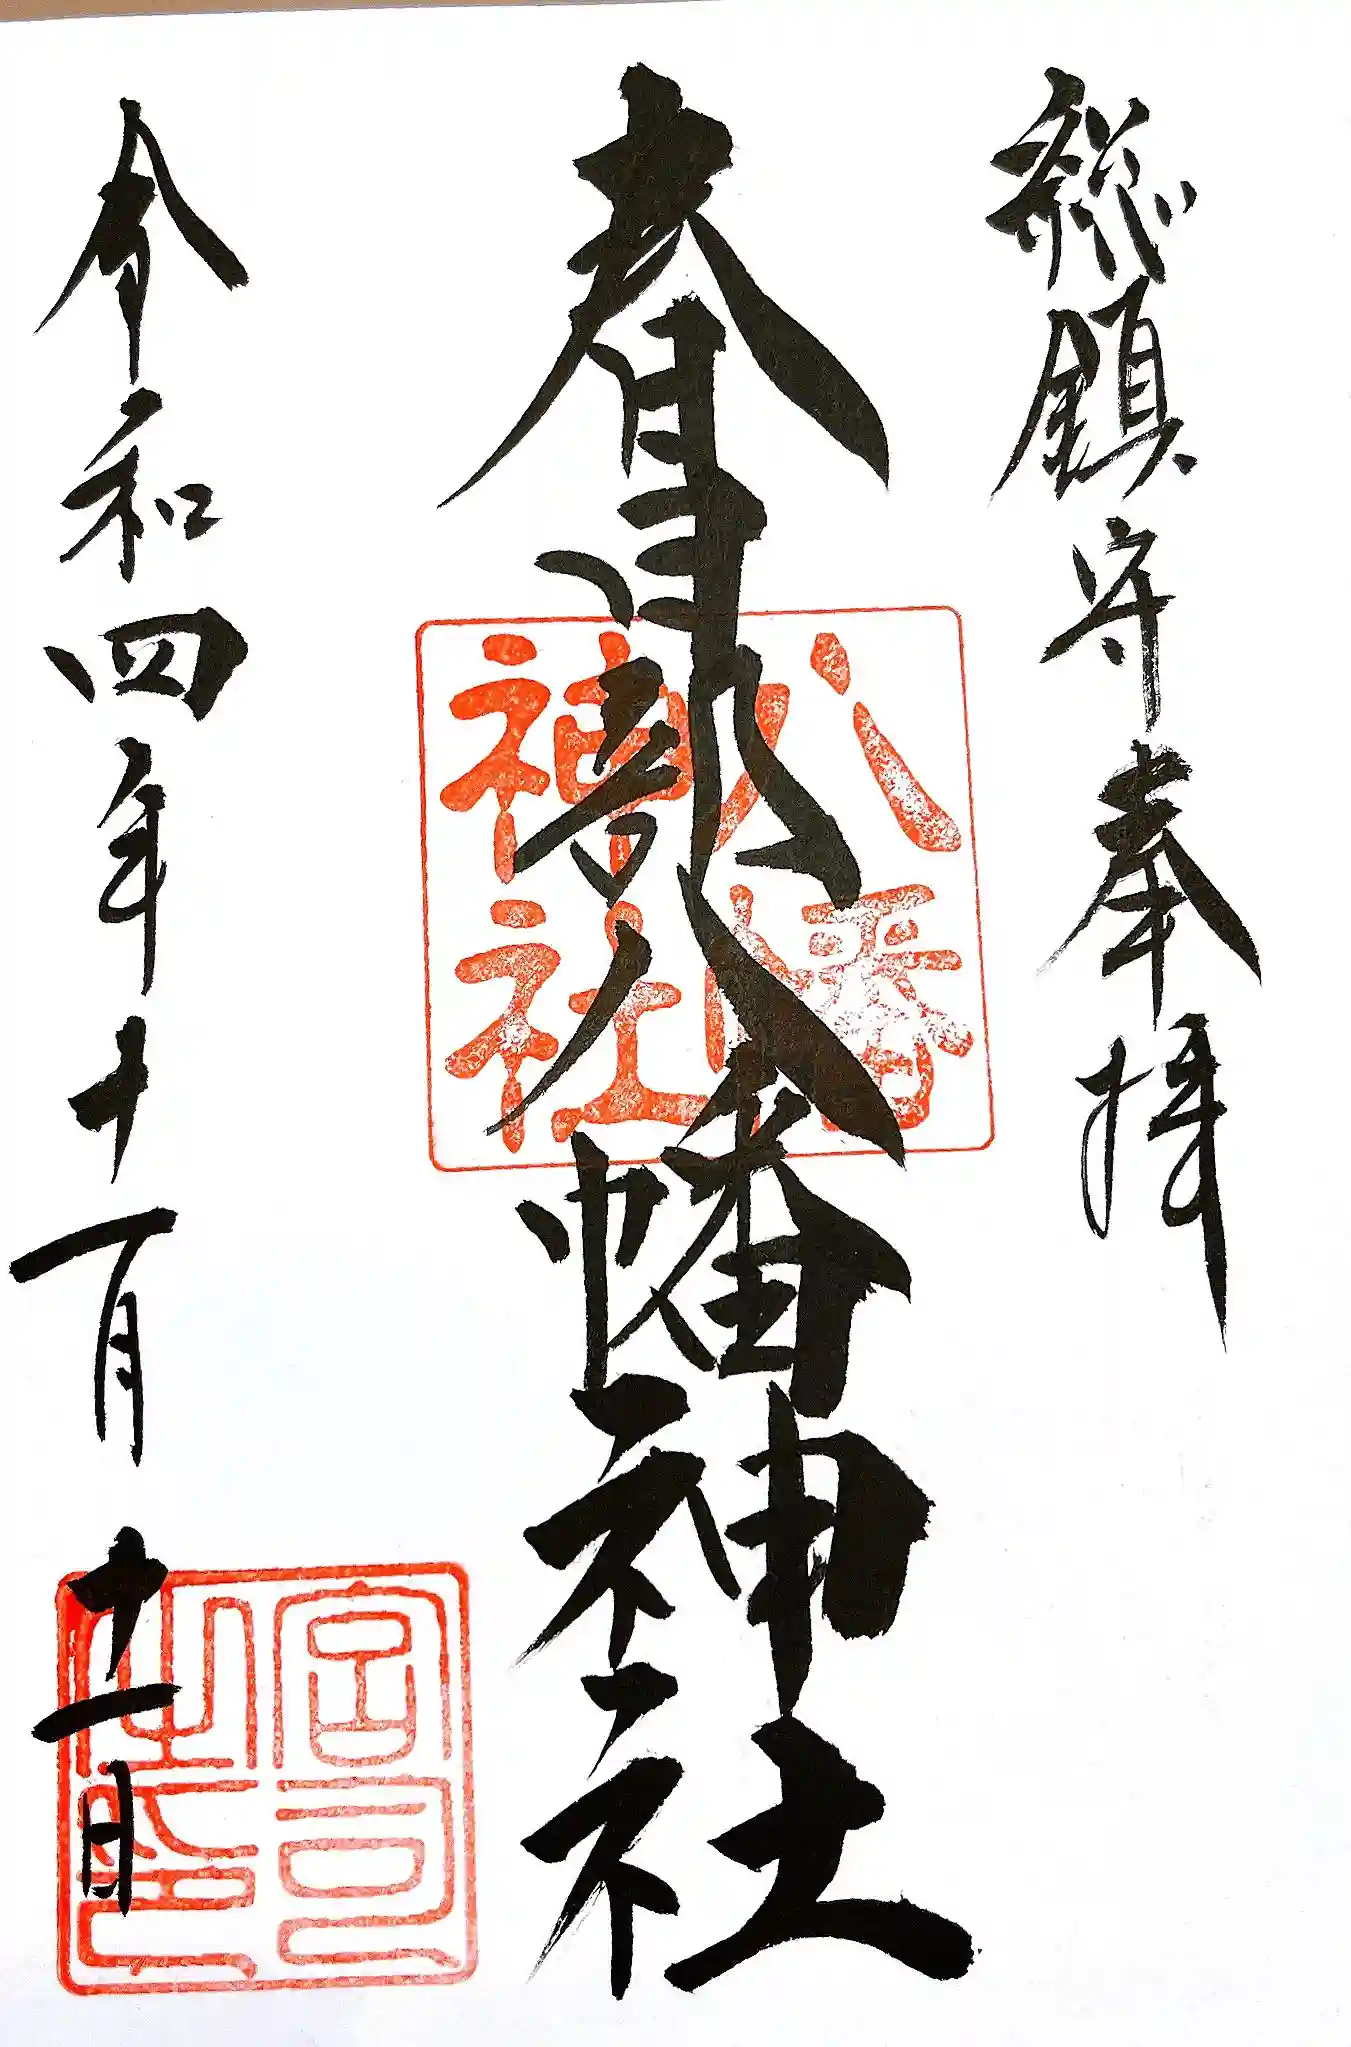 総鎮守奉拝
春日部八幡神社
八幡
神社
令和四年十一月十一日
宮司
之印